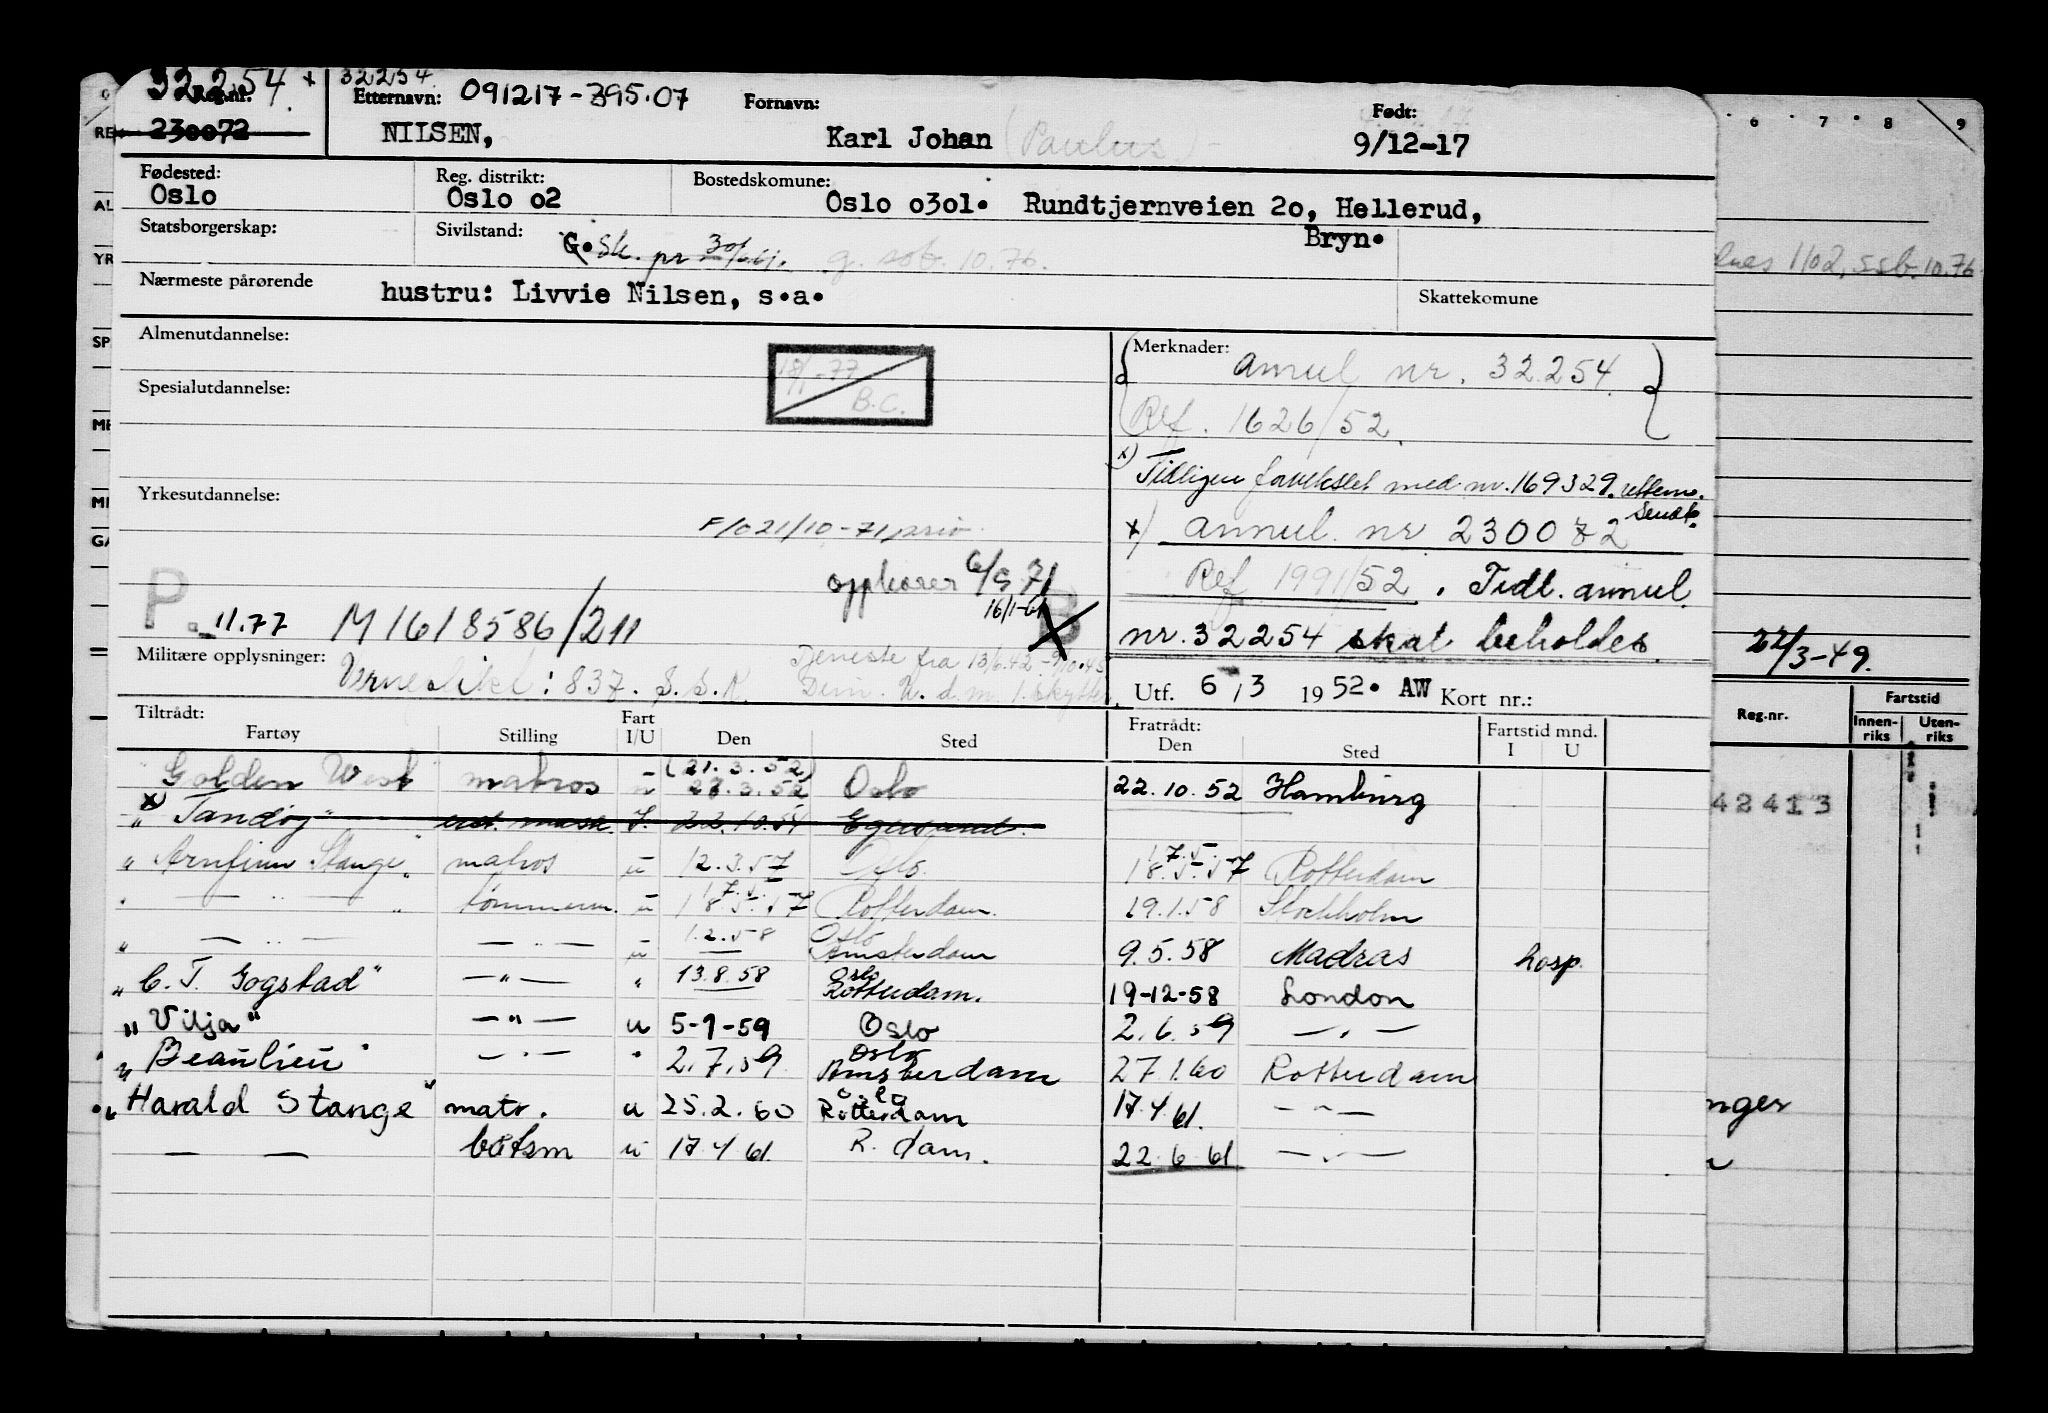 32254 +
32254
Reg.nr. Etternavn: 091217-395.07 Fornavn: Født:
230072 NILSEN, Karl Johan (Paulus) 9/12-17
Fødested: Reg. distrikt: Bostedskomune:
Oslo Oslo o2 Oslo o3o1. Rundtjernveien 2o, Hellerud,
Statsborgerskap: Sivilstand: G. Sk. pr 30/6.61. g. ssb. 10.76. Bryn.
Nærmeste pårørende hustru: Livvie Nilsen, s.a. Skattekomune
Almenutdannelse:
18/1-77
B.C.
Spesialutdannelse:
Yrkesutdannelse:
F/o 21/10-71 priv.
opphører 6/9 71
16/1-61
P. 11.77 M1618586/211 B
Militære opplysninger: Verneplikt: 837. S.S.K. Tjeneste fra 13/6.42 - 9/10.45
Dim. U.d.m. 1. skytter.
Merknader: annul nr. 32254
Ref. 1626/52.
x) Tidligere forvekslet med nr. 169329.
x) annul. nr 230072
Ref 1991/52. Tidl. annul.
nr. 32254 skal beholdes.
Utf. 6/3 1952. AW Kort nr.:
Tiltrådt: Fart Fratrådt: Fartstid mnd.
Fartøy Stilling I/U Den Sted Den Sted I U
"Golden West" matros u (21.3.52) 27.3.52 Oslo 22.10.52 Hamburg
x) "Tandøy" I. 22.10.54 Egersund.
"Arnfinn Stange" matros u 12.3.57 Oslo. 17.5. 18.5.57 Rotterdam
" — " — " tømmerm. u 17.5. 18.5.57 Rotterdam. 19.1.58 Stockholm
" — " — — " — u 1.2.58 Oslo Amsterdam 9.5.58 Madras hosp.
"C. T. Gogstad" — " — " 13.8.58 Oslo Rotterdam. 19-12-58 London
"Vilja" — " — u 5-1-59 Oslo 2.6.59 — " —
"Beaulieu" — " — " 2.7.59 Oslo Amsterdam 27.1.60 Rotterdam
"Harald Stange" matr. u 25.2.60 Oslo Rotterdam 17.4.61. — " —
— — båtsm u 17.4.61. R.dam. 22.6.61 — " —
6 7 8 9
1102, ssb. 10.76
22/3-49.
Reg.nr. Fartstid
Innen-riks Uten-riks
42413
RE
AL
YR
SP
ME
MI
GA